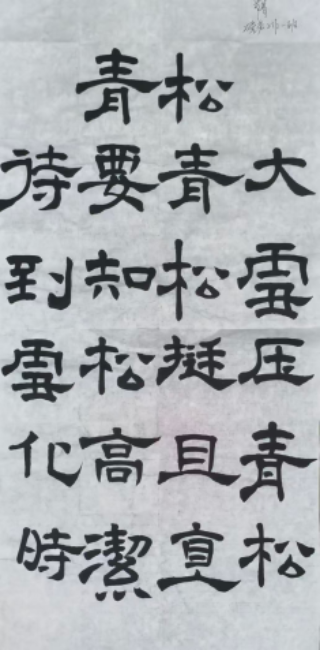 青松
大雪压青松
青松挺且直
要知松高潔
待到雪化時